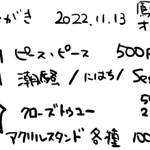 がき 2022.11.13
ピース・ピース 500
潮騒 /にはち/
クローズトゥユー
アクリルスタンド 各種 100